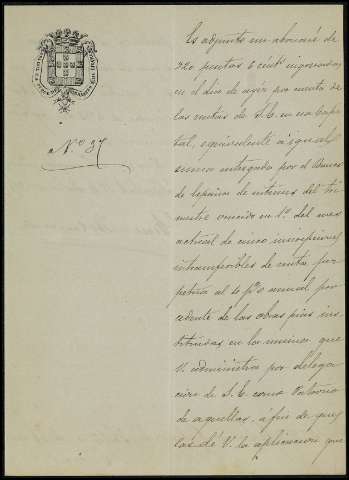 Nº 37
Es adjunto un abonaré de
220 pesetas 6 cents ingresadas
en el dia de ayer por cuenta de
las rentas de S.E. en esa Capi
tal, equivalente á igual
suma entregada por el Banco
de España de intereses del tri
mestre vencido en 1º del mes
actual de cinco inscripciones
intransferibles de renta per
petua al 4 p% anual pro
cedente de las obras pias ins
tituidas en la misma que
V. administra por delega
cion de S.E. como Patrono
de aquellas, á fin de que
las dé V. la aplicacion que